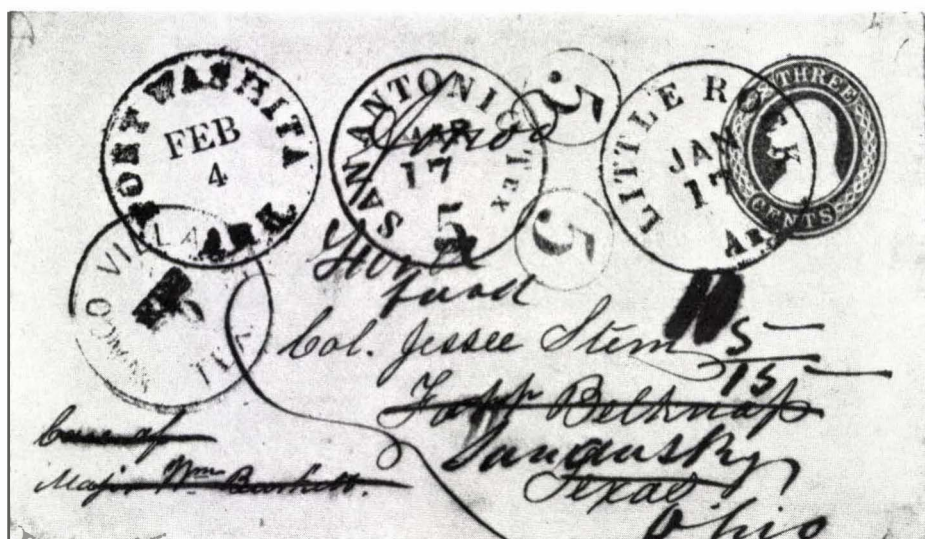 FORT WASHITA
FEB
4
ARK.
SAN ANTONIO TEX
17
5
5
5
LITTLE ROCK
JAN
17
Ark.
THREE
CENTS
WACO VILLAGE
Col. Jessee Stem
5
15
Fort Belknap
Sandusky
Texas
Ohio
Care of
Major Wm